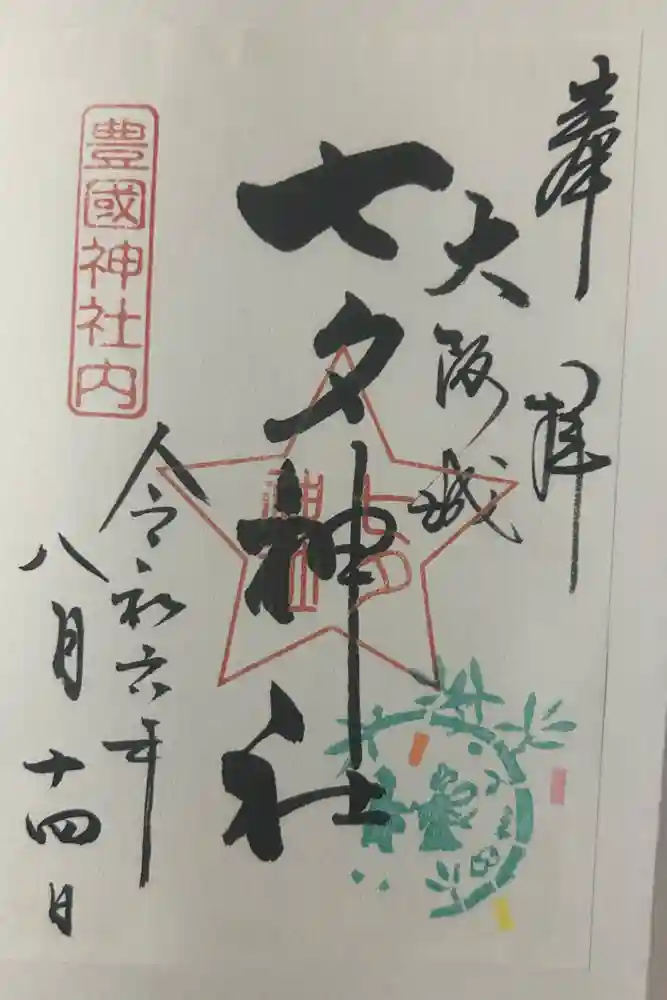 奉拝
大阪城
七夕神社
令和六年
八月十四日
豊國神社内